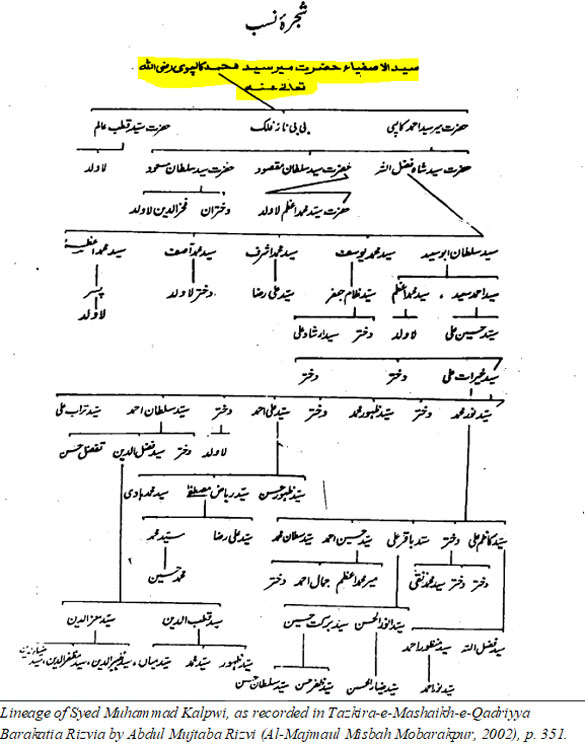 شجرۂ نسب
سید الاصفیاء حضرت میر سید محمد کالپوی رضی اللہ
تعالےٰ عنہ
حضرت میر سید احمد کالپی بی بی ناز فلک حضرت سید قطب عالم
حضرت سید شاہ فضل اللہ حضرت سید سلطان مقصود حضرت سید سلطان مسعود لاولد
حضرت سید محمد اعظم لاولد دختران فخر الدین لاولد
سید سلطان ابو سید سید محمد یوسف سید محمد اشرف سید محمد آصف سید محمد
سید احمد سید سید محمد اعظم سید نظام جعفر سید علی رضا دختر لاولد پسر
سید حسین علی لاولد دختر سید ارشاد علی لاولد
سید خیرات علی دختر دختر
سید نور محمد دختر سید ظہور محمد دختر سید علی احمد دختر سید سلطان احمد سید تراب علی
لاولد دختر سید فضل الدین تفضل حسن
سید ظہور حسن سید ریاض مصطفےٰ سید محمد ہادی
سید کاظم علی دختر سید باقر علی سید حسین احمد سید سلطان محمد سید محمد سید علی رضا
دختر دختر سید محمد نقی میر محمد اعظم جمال احمد دختر محمد حسین
سید فضل اللہ سید منظور احمد سید انوار الحسن سید برکت حسین سید قطب الدین سید معز الدین
سید نور احمد سید ضیاء الحسن سید ظفر حسن سید سلطان حسن سید ظہور سید محمد سید میاں
Lineage of Syed Muhammad Kalpwi, as recorded in Tazkira-e-Mashaikh-e-Qadriyya
Barakatia Rizvia by Abdul Mujtaba Rizvi (Al-Majmaul Misbah Mobarakpur, 2002), p. 351.